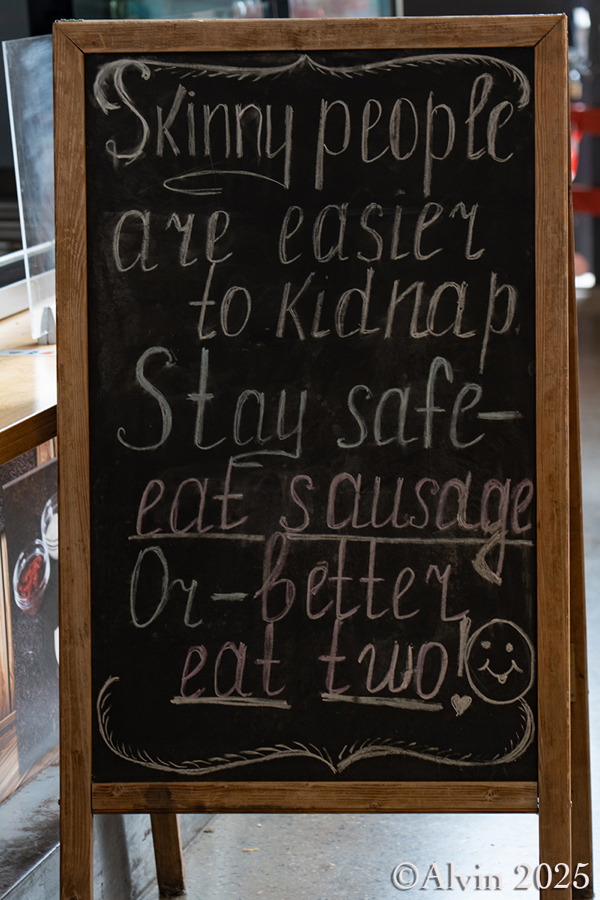 Skinny people
are easier
to kidnap.
Stay safe-
eat sausage
Or-better
eat two!
©Alvin 2025